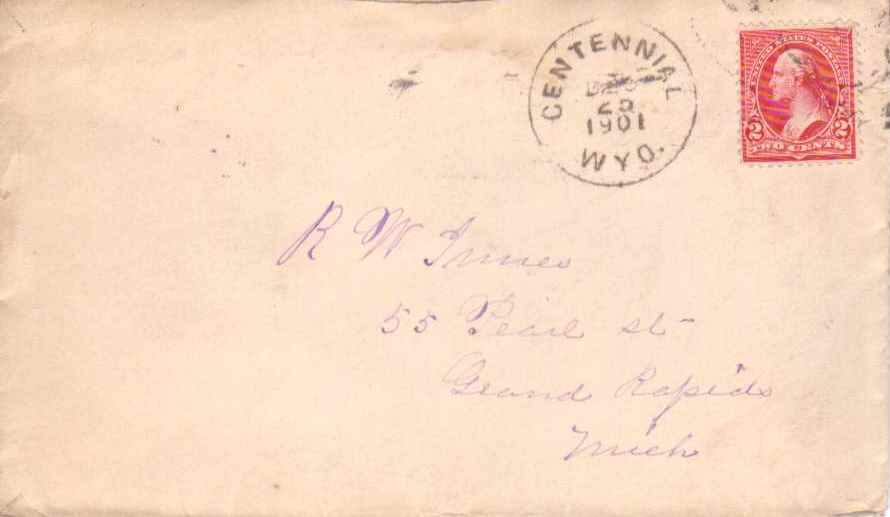 CENTENNIAL
DEC
25
1901
WYO.
UNITED STATES POSTAGE
2 2
TWO CENTS
R W Innes
55 Pearl st-
Grand Rapids
Mich